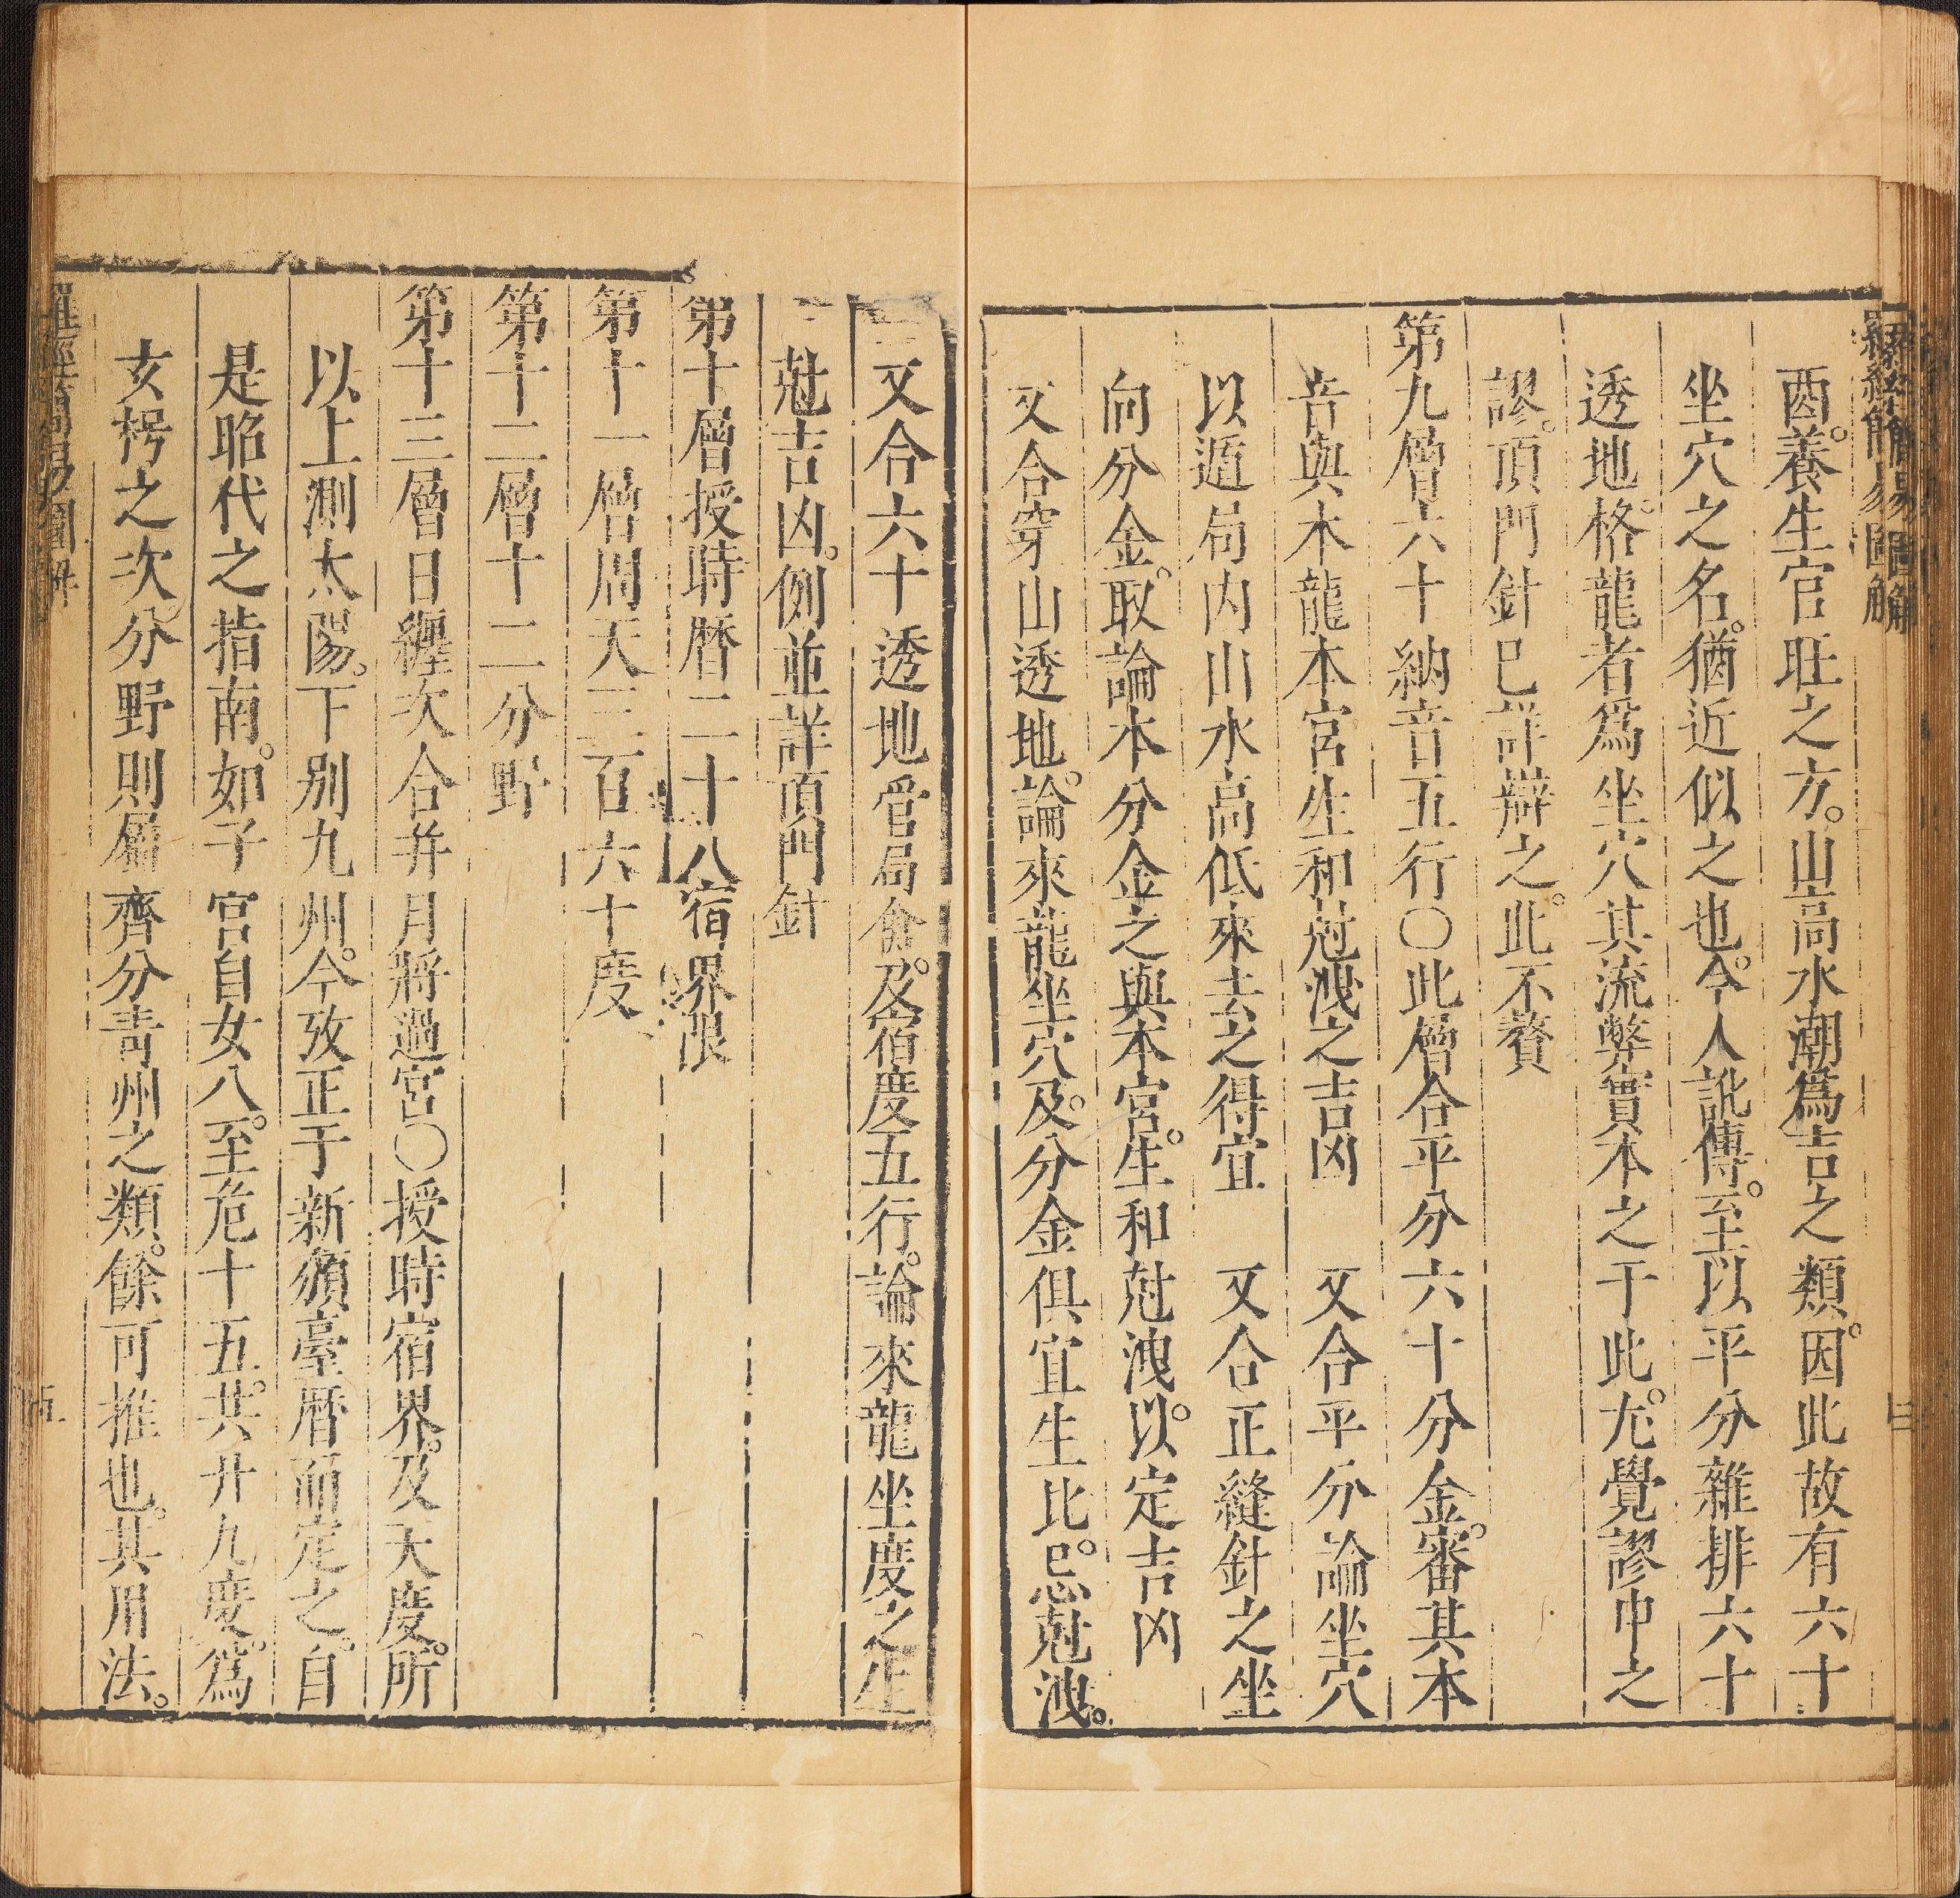 羅經簡易圖解
酉。養生官旺之方。山高水潮爲吉之類。因此故有六十
坐穴之名。猶近似之也。今人訛傳。至以平分雜排六十
透地。格龍者爲坐穴其流弊實本之于此。尤覺謬中之
謬。頂門針已詳辯之。此不贅
第九層六十納音五行○此層合平分六十分金。審其本
音與木龍本宮生和尅洩之吉凶　又合平分論坐穴
以遁局内山水高低來去之得宜　又合正縫針之坐
向分金。取論本分金之與本宮。生和尅洩。以定吉凶
又合穿山透地。論來龍坐穴及。分金俱宜生比。忌尅洩。
又合六十透地管局龠。及宿度五行。論來龍坐度之生
尅吉凶。例並詳頂門針
第十層授時曆二十八宿界限
第十一層周天三百六十度
第十二層十二分野
第十三層日纏次合并月將過宮○授時宿界。及天度。所
以上測太陽。下別九州。今攷正于新頒臺曆而定之。自
是昭代之指南。如子宮自女八。至危十五。共廾九度。爲
玄枵之次。分野則屬齊分青州之類。餘可推也。其用法。
羅經簡易圖解
五